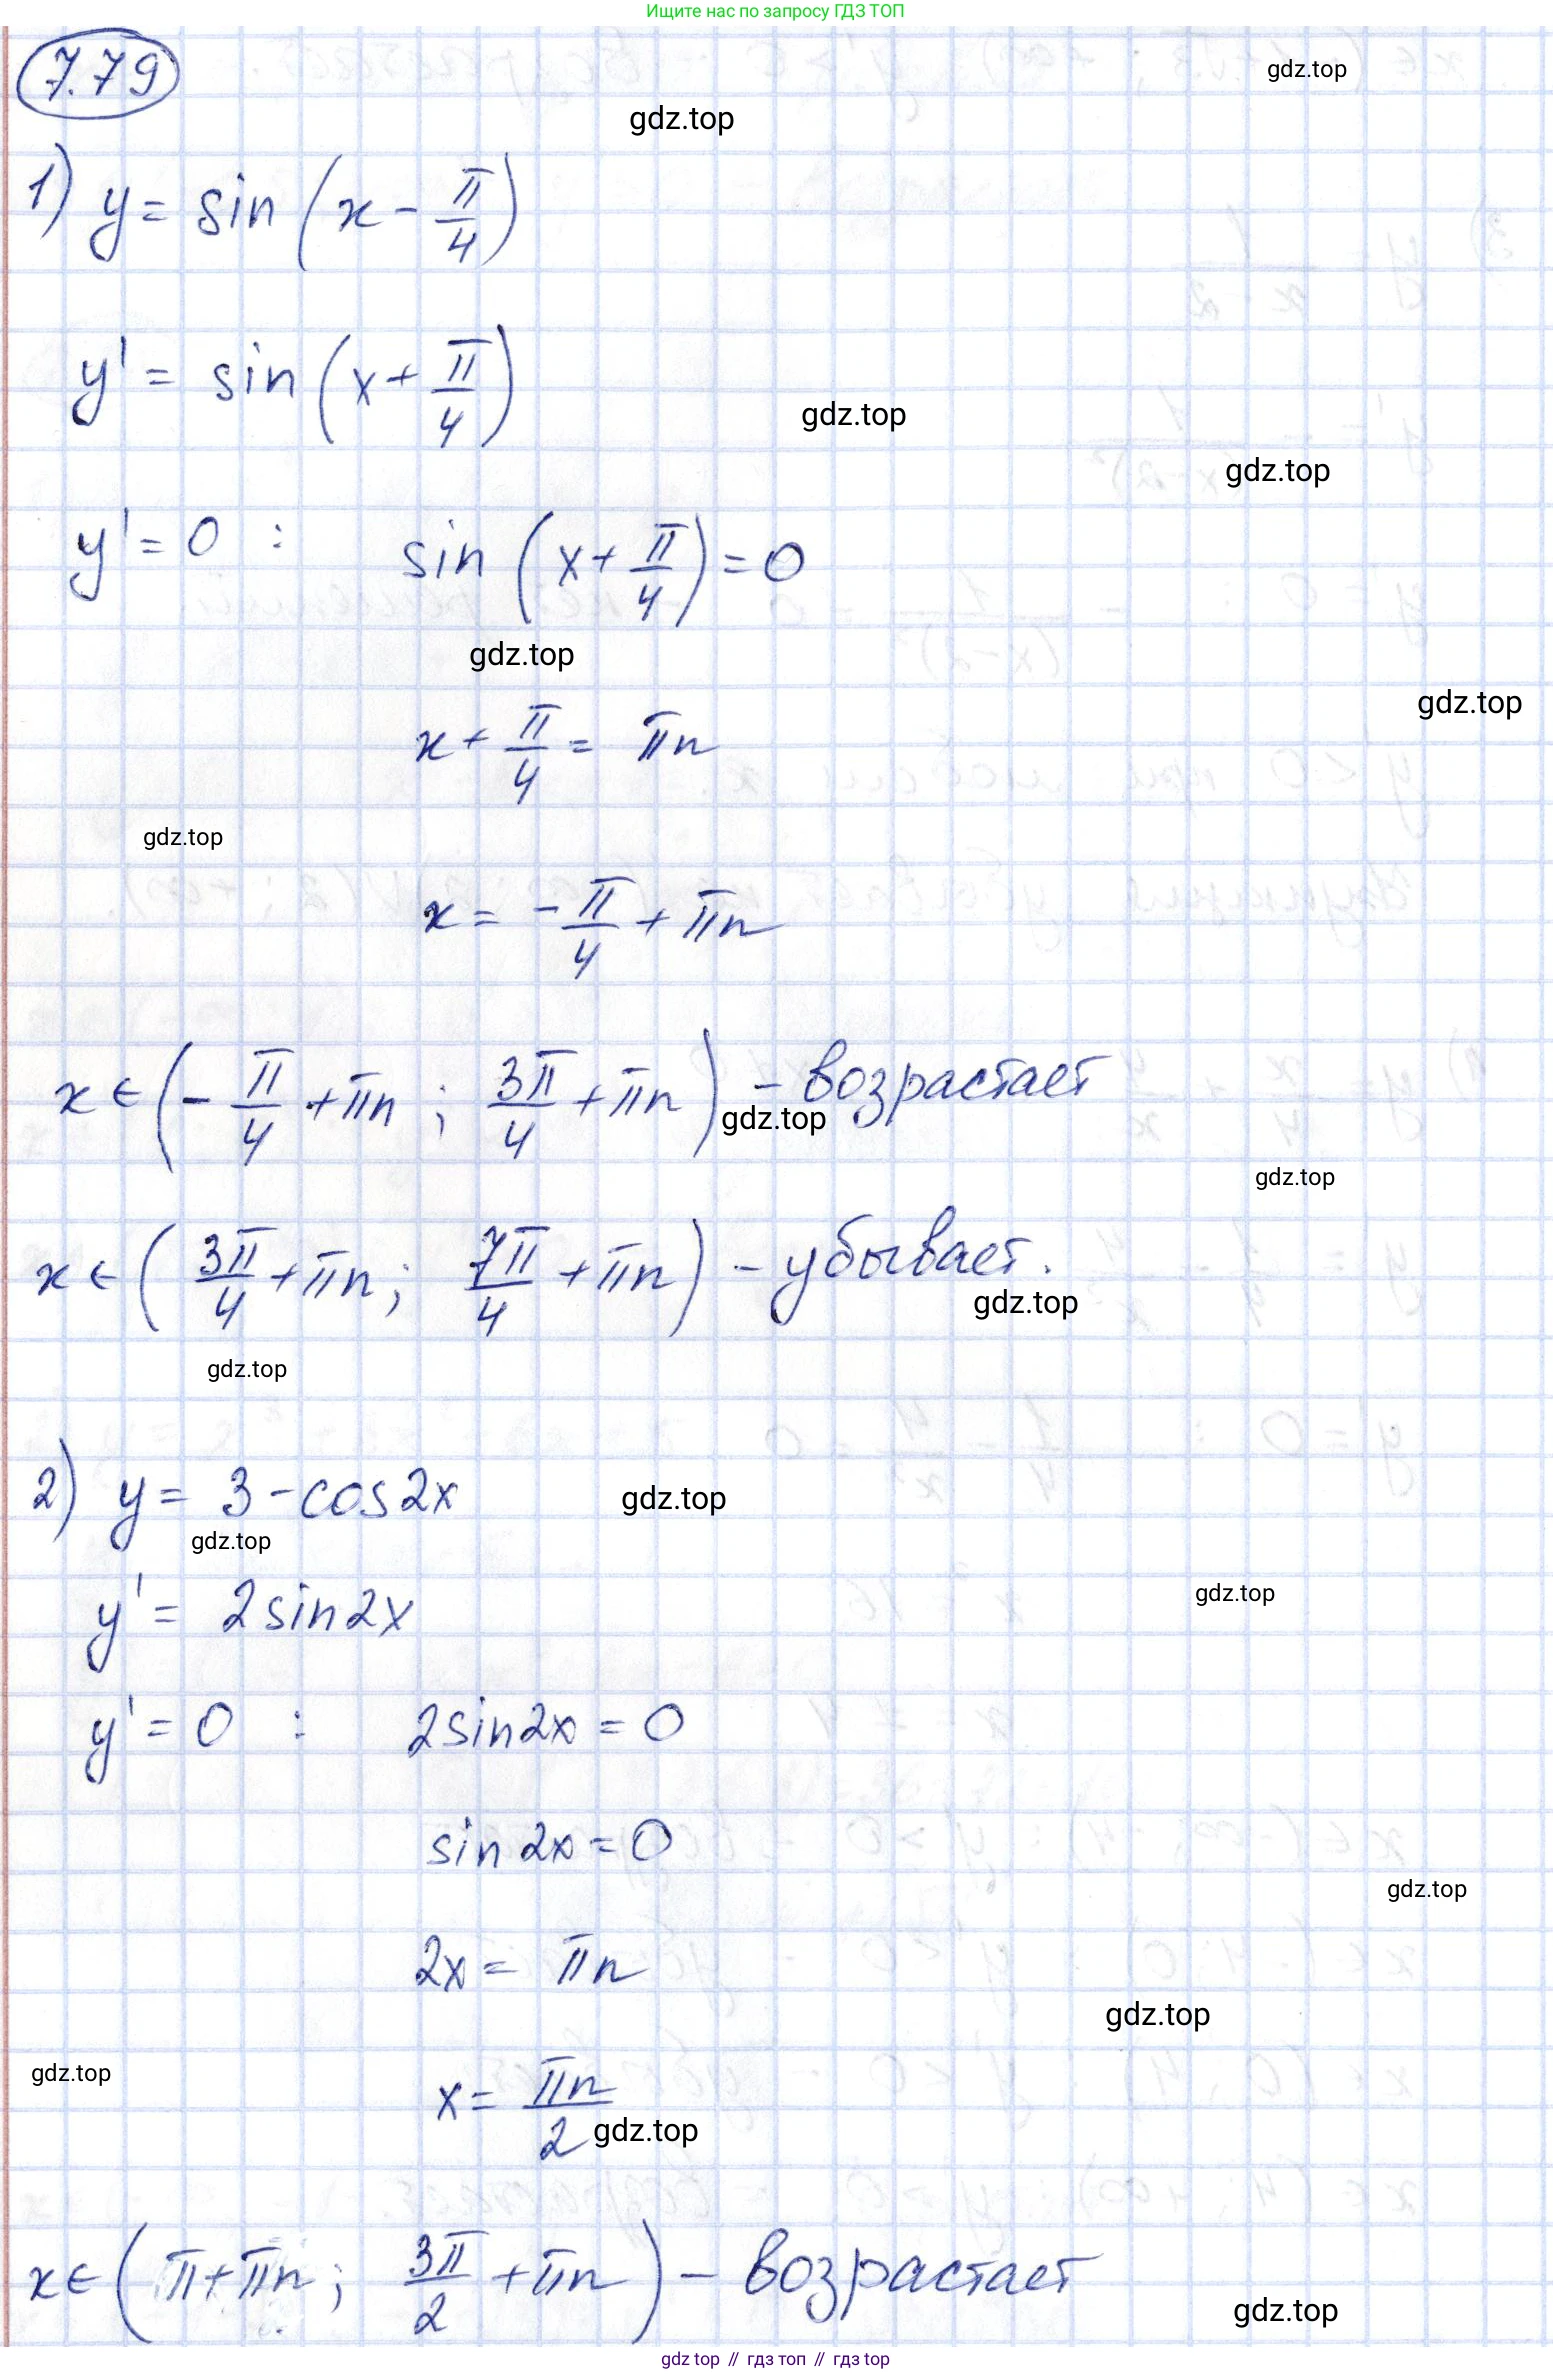 Ищите нас по запросу ГДЗ ТОП
7.79
gdz.top
gdz.top
1) y = sin(x - π/4)
y' = sin(x + π/4)
gdz.top
gdz.top
y' = 0 : sin(x + π/4) = 0
gdz.top
gdz.top
x + π/4 = πn
gdz.top
x = -π/4 + πn
x ∈ (-π/4 + πn ; 3π/4 + πn) - возрастает
gdz.top
gdz.top
x ∈ (3π/4 + πn ; 7π/4 + πn) - убывает.
gdz.top
gdz.top
2) y = 3 - cos2x
gdz.top
gdz.top
y' = 2sin2x
gdz.top
y' = 0 : 2sin2x = 0
sin2x = 0
gdz.top
2x = πn
gdz.top
gdz.top
x = πn/2
gdz.top
x ∈ (π + πn ; 3π/2 + πn) - возрастает
gdz.top
gdz top // гдз топ // гдз top